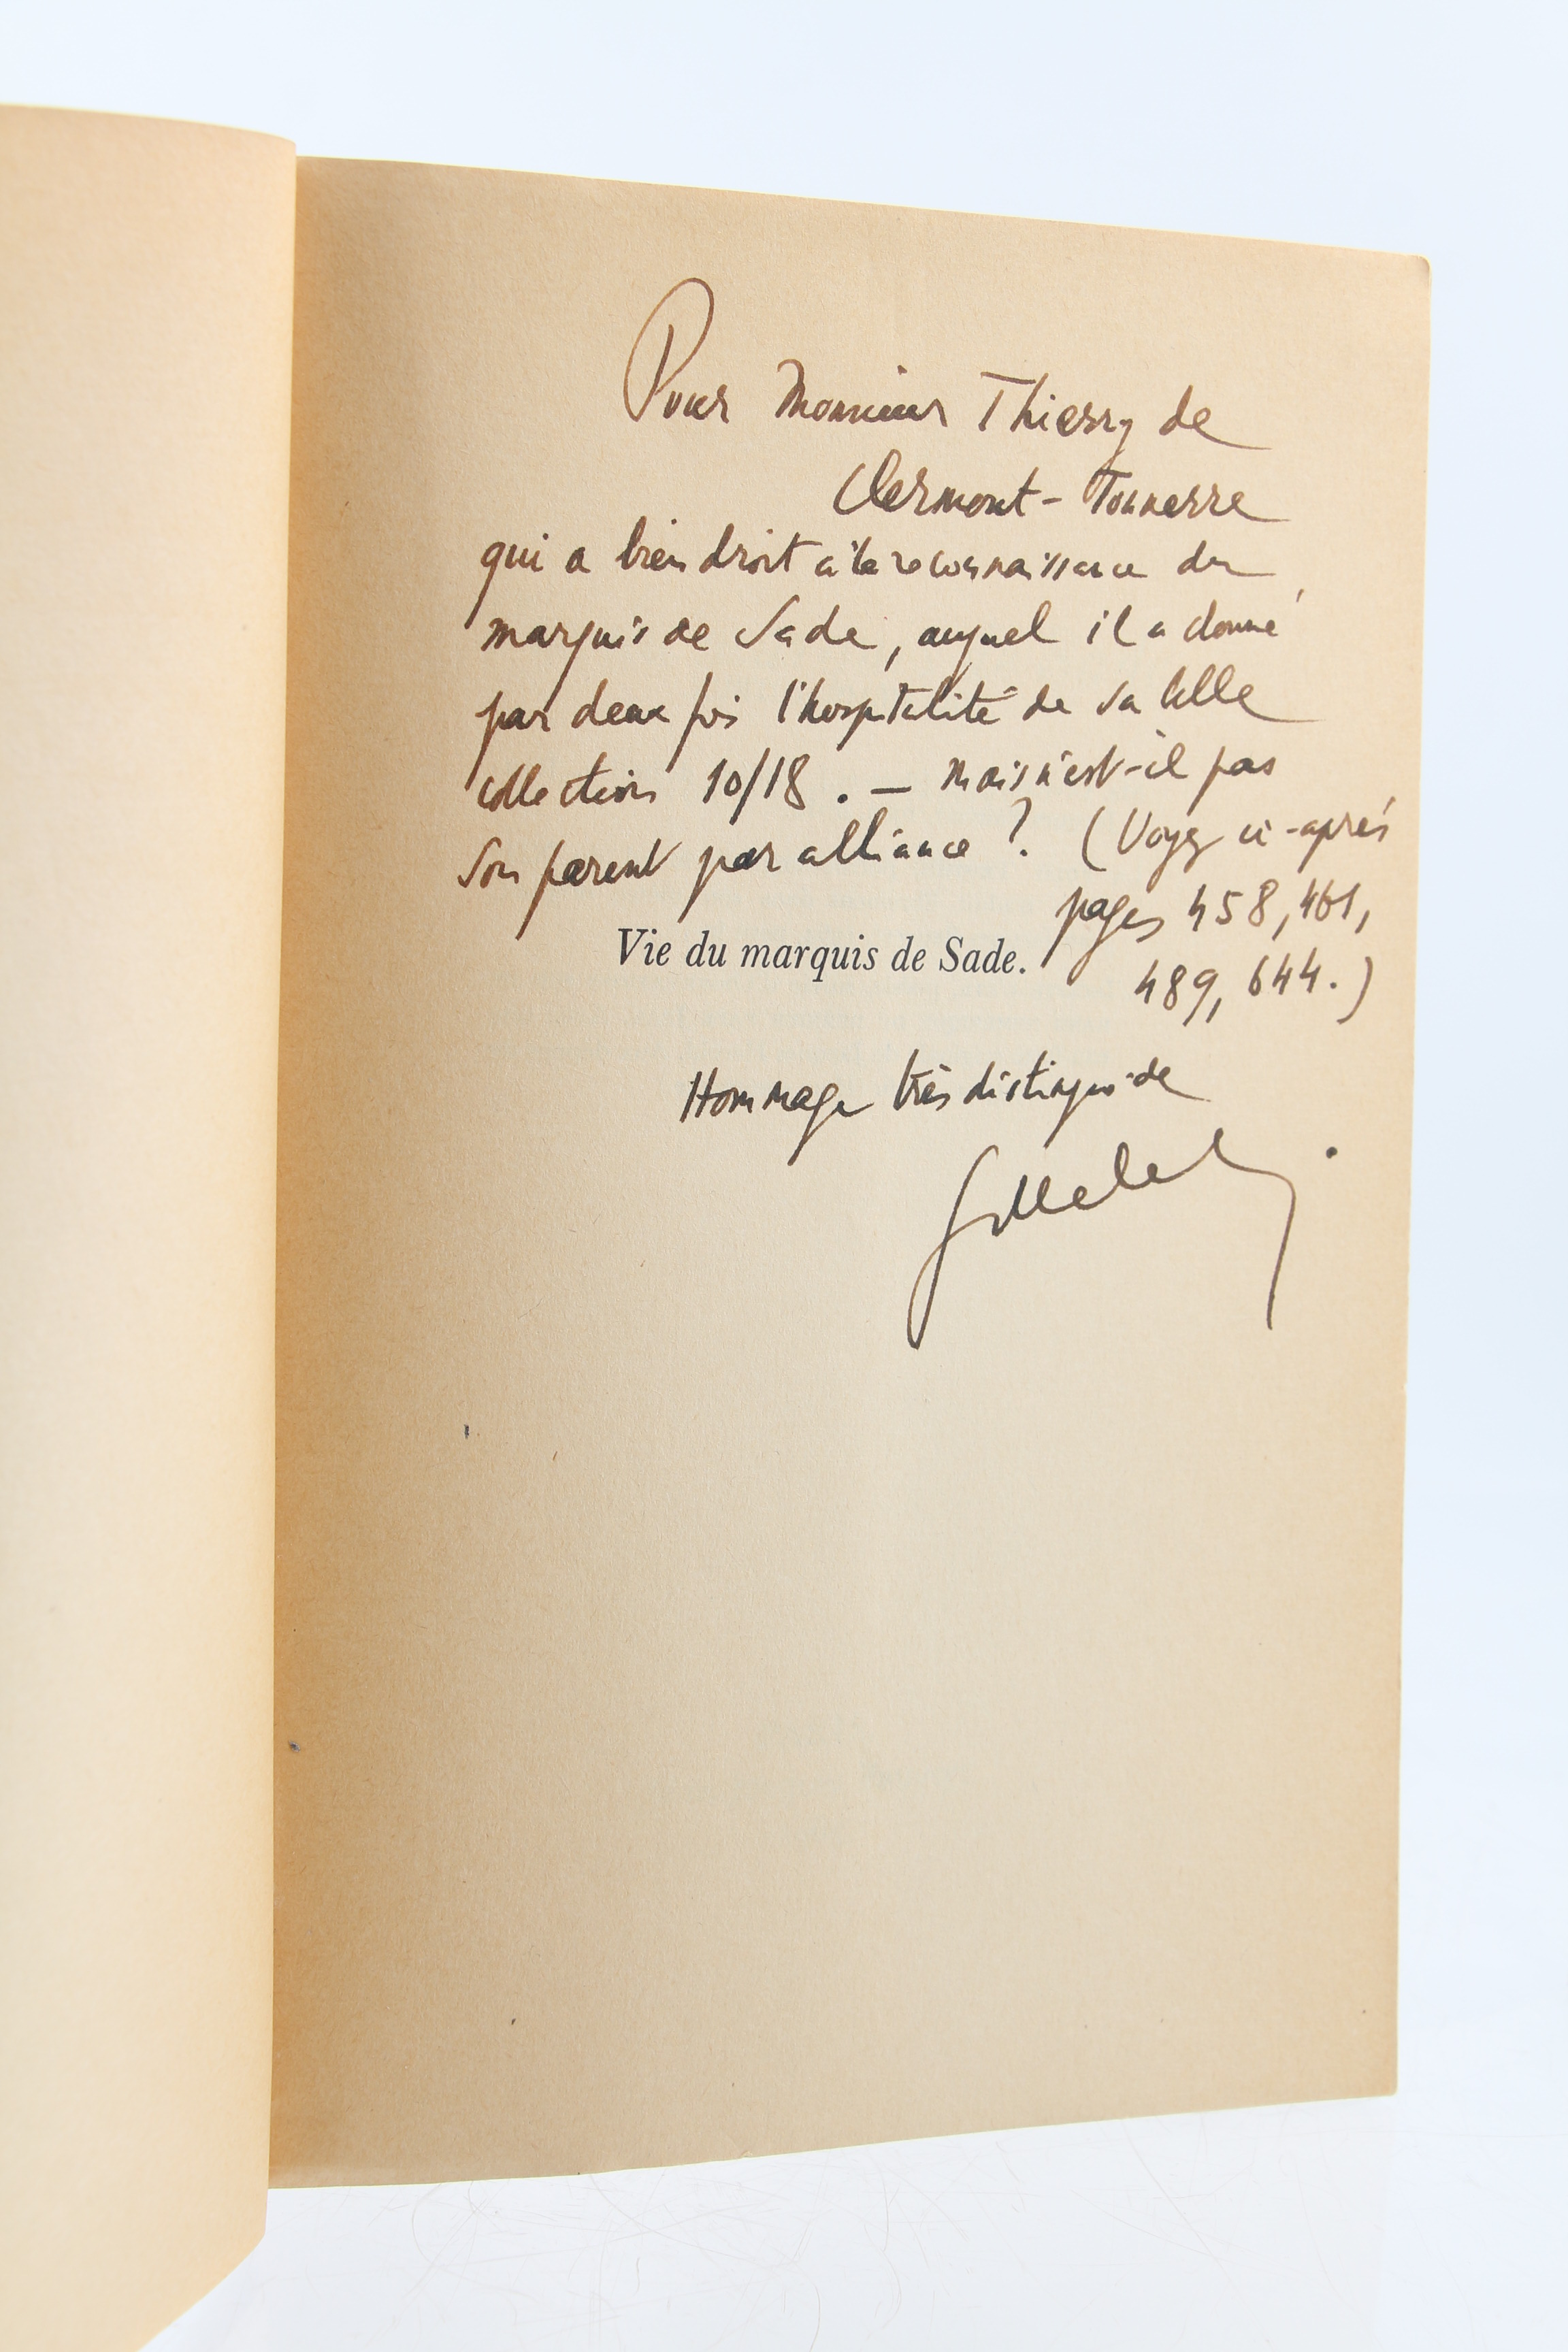 Pour Monsieur Thierry de
Clermont-Tonnerre
qui a bien droit à la reconnaissance du
marquis de Sade, auquel il a donné
par deux fois l'hospitalité de sa belle
collection 10/18. — Mais n'est-il pas
son parent par alliance ? (Voyez ci-après
pages 458, 461,
Vie du marquis de Sade.
489, 644.)
Hommage très distingué de